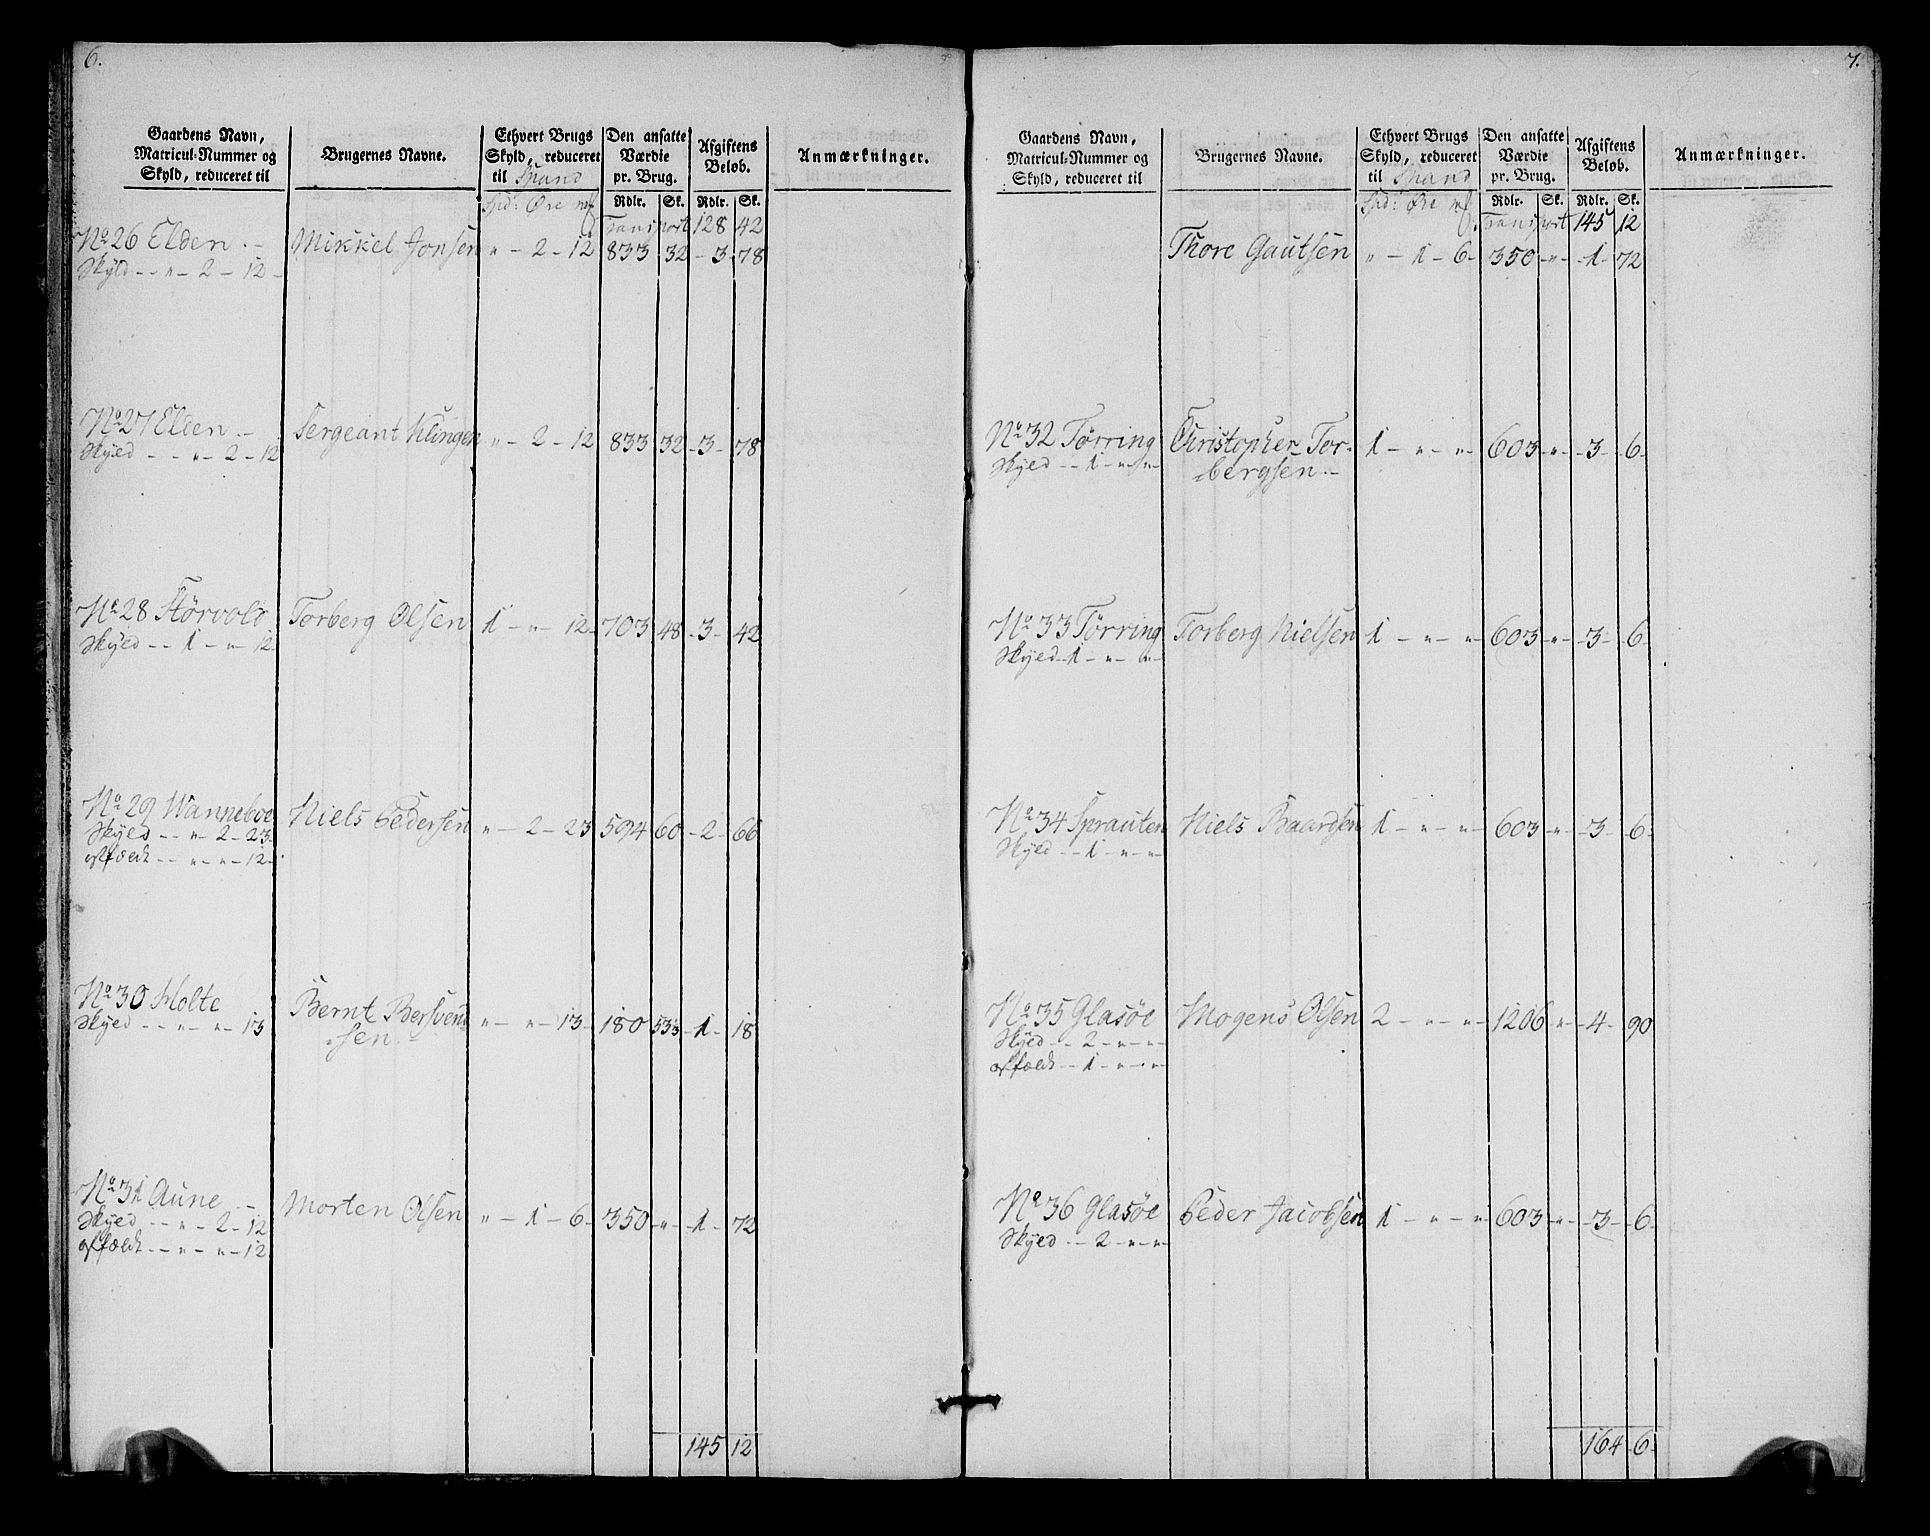 6.
Gaardens Navn, Matricul-Nummer og Skyld, reduceret til
Brugernes Navne.
Ethvert Brugs Skyld, reduceret til Spand
Den ansatte Værdie pr. Brug.
Afgiftens Beløb.
Anmærkninger.
Spd: Øre mk Rdlr. Sk. Rdlr. Sk.
Transport 128 42
No 26 Elden .- Mikkel Jonsen " - 2 - 12 833 32 - 3 - 78
Skyld - - " - 2 - 12 -
No 27 Elden .- Sergeant Klingen " - 2 - 12 833 32 - 3 - 78
Skyld - - " - 2 - 12
No 28 Størvold Torberg Olsen 1 - " - 12 - 703 48 - 3 - 42
Skyld - - 1 - " - 12 -
No 29 Wanneboe Niels Pedersen " - 2 - 23 594 60 - 2 - 66
Skyld - - " - 2 - 23 -
affældt - - " - " - 12 -
No 30 Holte Bernt Bersvend
Skyld - - " - " - 13 sen " - " - 13 - 180 53 3 - 1 - 18
No 31 Aune .- Morten Olsen " - 1 - 6 - 350 - " - 1 - 72
Skyld - - " - 2 - 12
affældt - - " - " - 12
145 12
7.
Gaardens Navn, Matricul-Nummer og Skyld, reduceret til
Brugernes Navne.
Ethvert Brugs Skyld, reduceret til Spand
Den ansatte Værdie pr. Brug.
Afgiftens Beløb.
Anmærkninger.
Spd: Øre mk Rdlr. Sk. Rdlr. Sk.
Transport 145 12
Thore Gautsen " - 1 - 6 - 350 - " - 1 - 72
No 32 Tørring Christopher Tor-
Skyld - - 1 - " - " - bergsen .- 1 - " - " - 603 - " - 3 - 6 -
No 33 Tørring Torberg Nielsen 1 - " - " - 603 - " - 3 - 6 -
Skyld - 1 - " - " -
No 34 Sprauten Niels Baardsen 1 - " - " - 603 - " - 3 - 6 -
Skyld - - 1 - " - " -
No 35 Glasøe Mogens Olsen 2 - " - " - 1206 - " - 4 - 90
Skyld - - 2 - " - " -
affældt - - 1 - " - " -
No 36 Glasøe Peder Jacobsen 1 - " - " - 603 - " - 3 - 6 -
Skyld - - 2 - " - " -
164 - 6 -